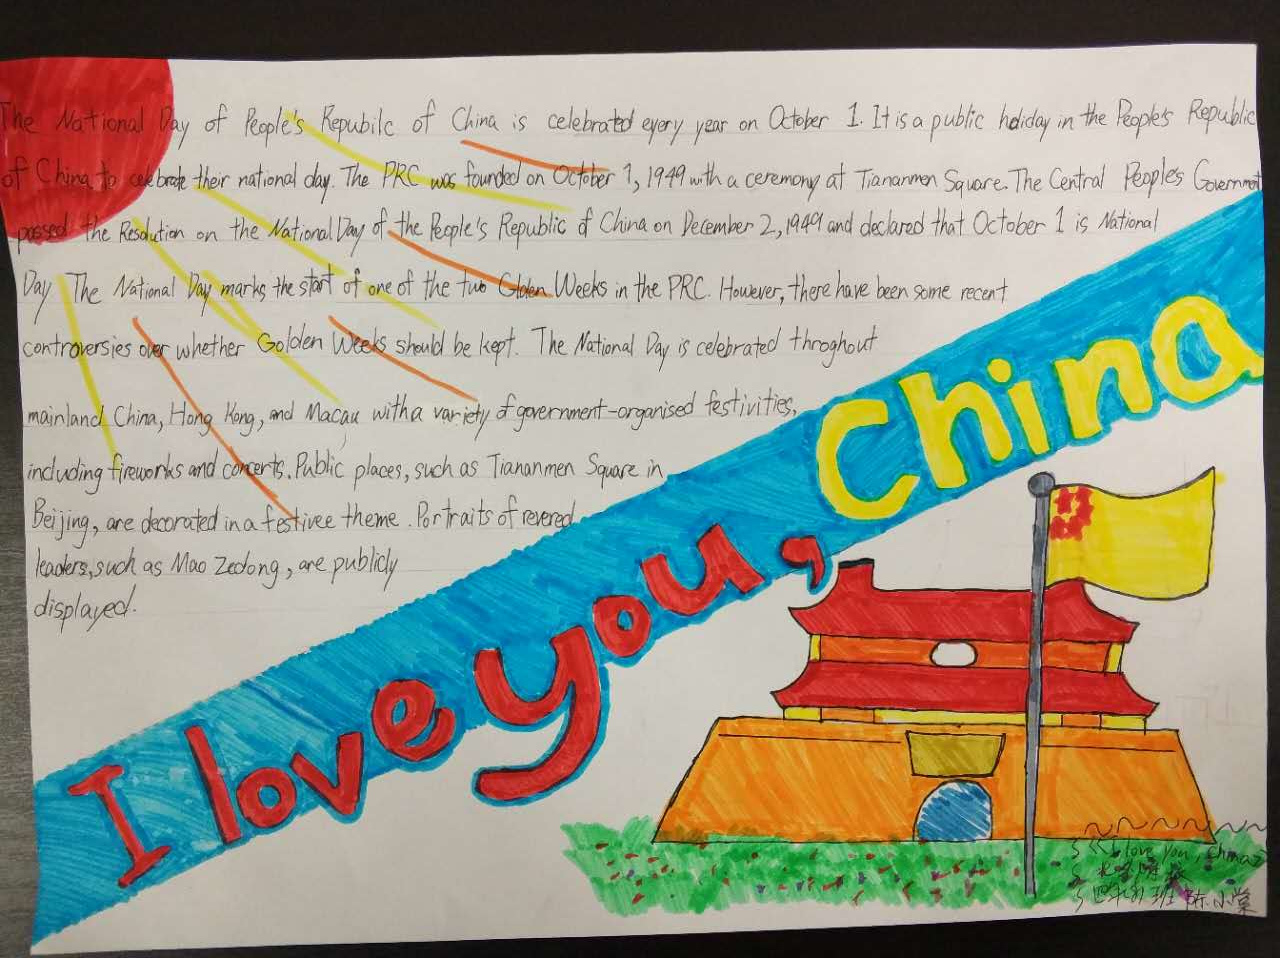 The National Day of People's Repubilc of China is celebrated eyery year on October 1. It is a public holiday in the People's Republic
of China to celebrate their national day. The PRC was founded on October 1, 1949 with a ceremony at Tiananmen Square. The Central People's Government
passed the Resolution on the National Day of the People's Republic of China on December 2, 1949 and declared that October 1 is National
Day The National Day marks the start of one of the two Glden Weeks in the PRC. However, there have been some recent
controversies over whether Golden Weeks should be kept. The National Day is celebrated throghout
mainland China, Hong Kong, and Macau with a variety of government-organised festivities,
including fireworks and concerts. Public places, such as Tiananmen Square in
Beijing, are decorated in a festivee theme. Portraits of revered
leaders, such as Mao Zedong, are publicly
displayed.
I love you, China
《I love you, China》
班 陈小棠